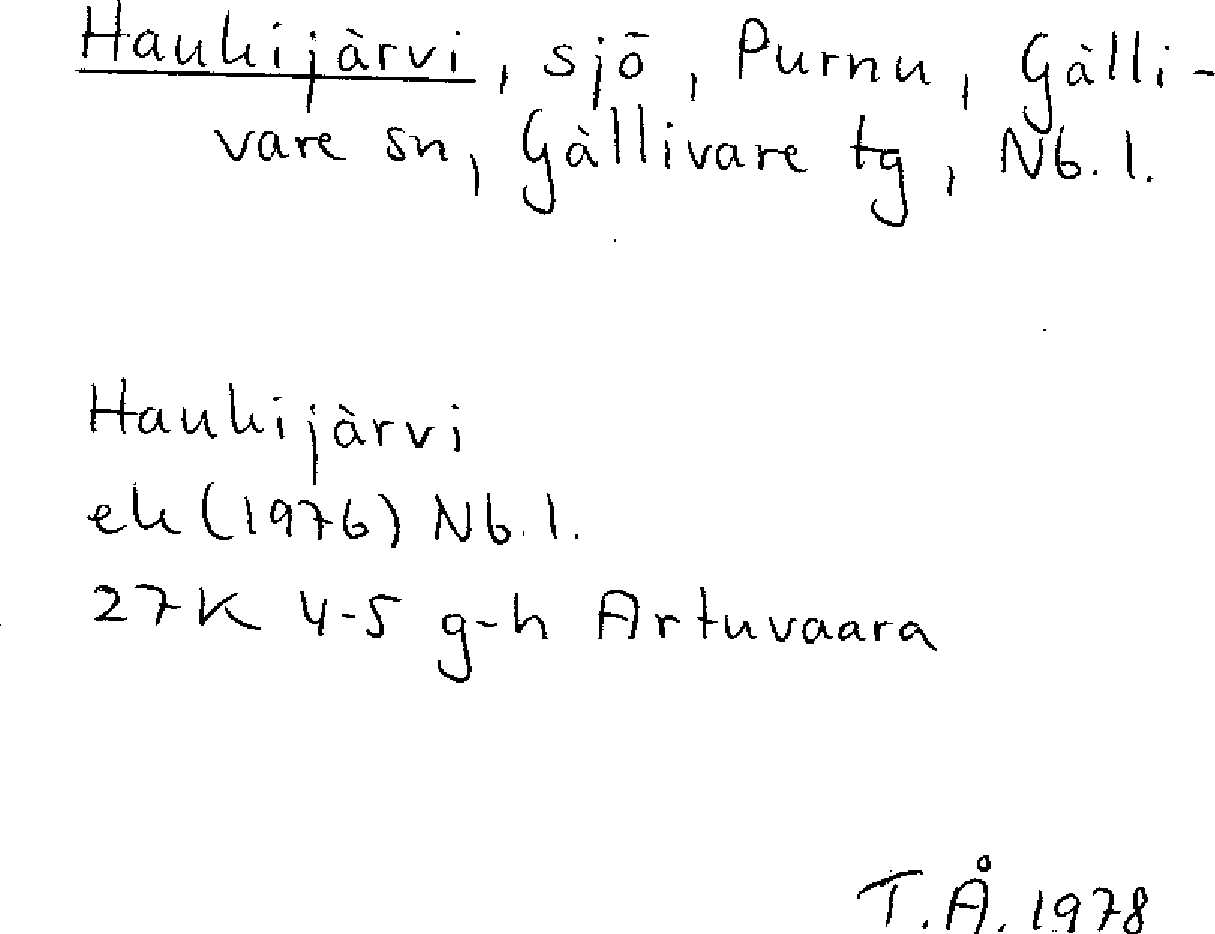 Haukijärvi, sjö, Purnu, Gälli-
vare sn, Gällivare tg, Nb. l.
Haukijärvi
ek (1976) Nb. l.
27K 4-5 g-h Artuvaara
T.Å. 1978